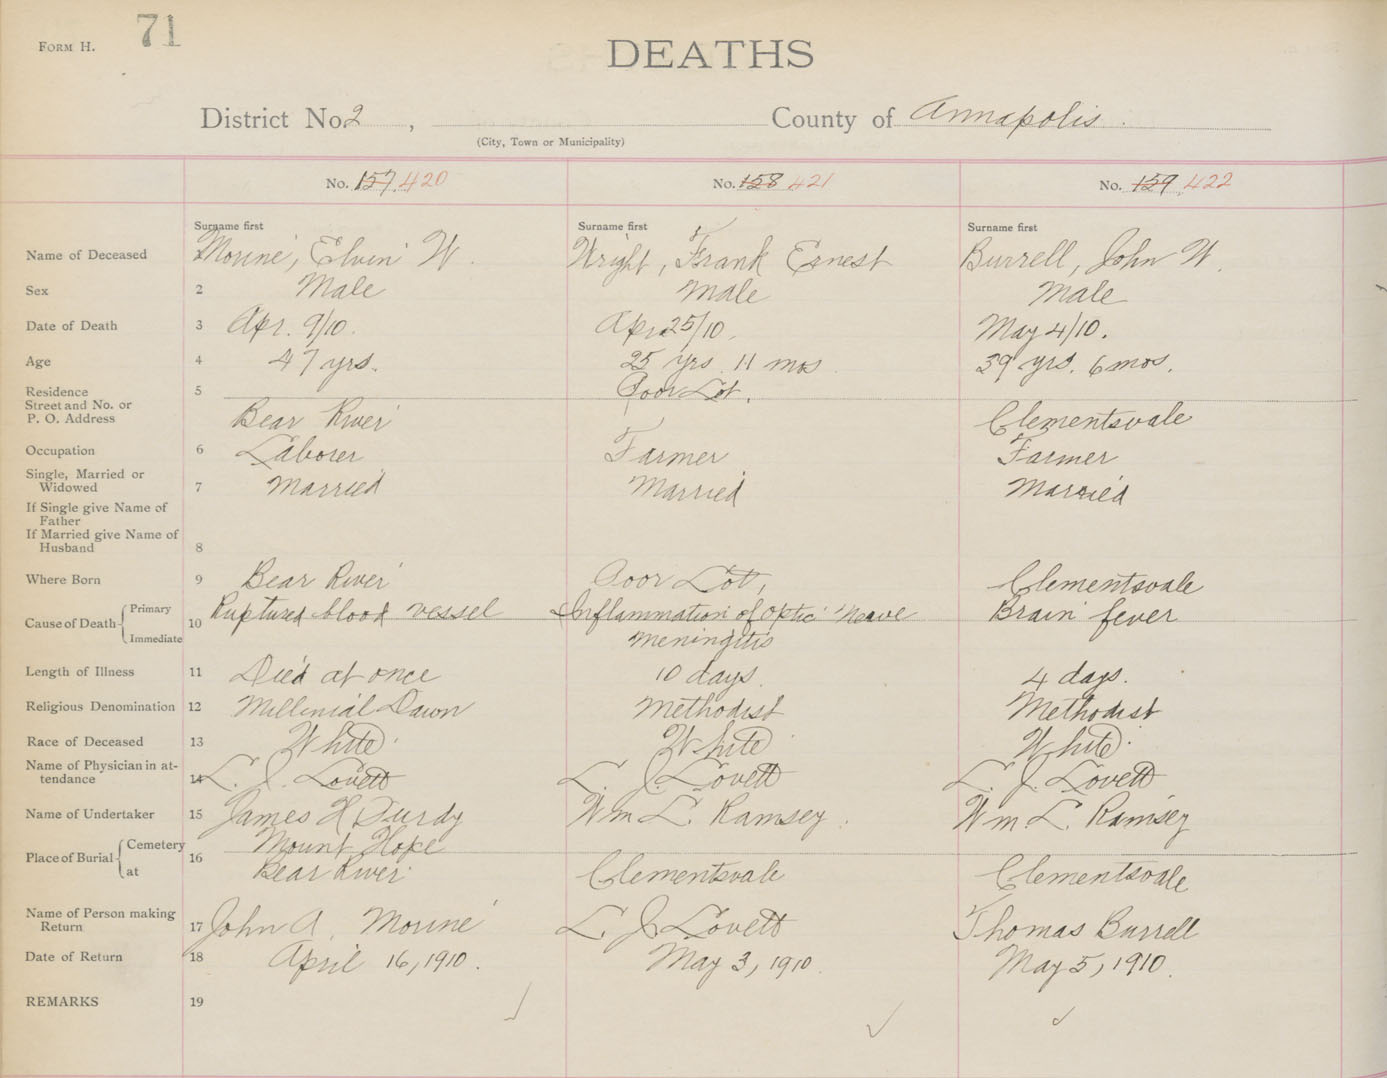 FORM H.
71
DEATHS
District No. 2 , County of Annapolis.
(City, Town or Municipality)
No. 157. 420 No. 158 421 No. 159 422
Surname first Surname first Surname first
Name of Deceased Morine, Elvin W. Wright, Frank Ernest Burrell, John W.
Sex 2 Male Male Male
Date of Death 3 Apr. 9/10. Apr 25/10. May 4/10.
Age 4 47 yrs. 25 yrs 11 mos 39 yrs. 6 mos.
Residence 5 Poor Lot.
Street and No. or
P. O. Address Bear River Clementsvale
Occupation 6 Laborer Farmer Farmer
Single, Married or
Widowed 7 Married Married Married
If Single give Name of
Father
If Married give Name of
Husband 8
Where Born 9 Bear River Poor Lot, Clementsvale
Primary Ruptured blood vessel Inflammation of Optic Nerve Brain fever
Cause of Death 10
Immediate Meningitis
Length of Illness 11 Died at once 10 days. 4 days.
Religious Denomination 12 Millenial Dawn Methodist Methodist
Race of Deceased 13 White White White
Name of Physician in at-
tendance 14 L. J. Lovett L. J. Lovett L. J. Lovett
Name of Undertaker 15 James H Purdy Wm L. Ramsey. Wm. L. Ramsey
Cemetery Mount Hope
Place of Burial 16
at Bear River Clementsvale Clementsvale
Name of Person making
Return 17 John A. Morine L. J. Lovett Thomas Burrell
Date of Return 18 April 16, 1910. May 3, 1910. May 5, 1910.
REMARKS 19